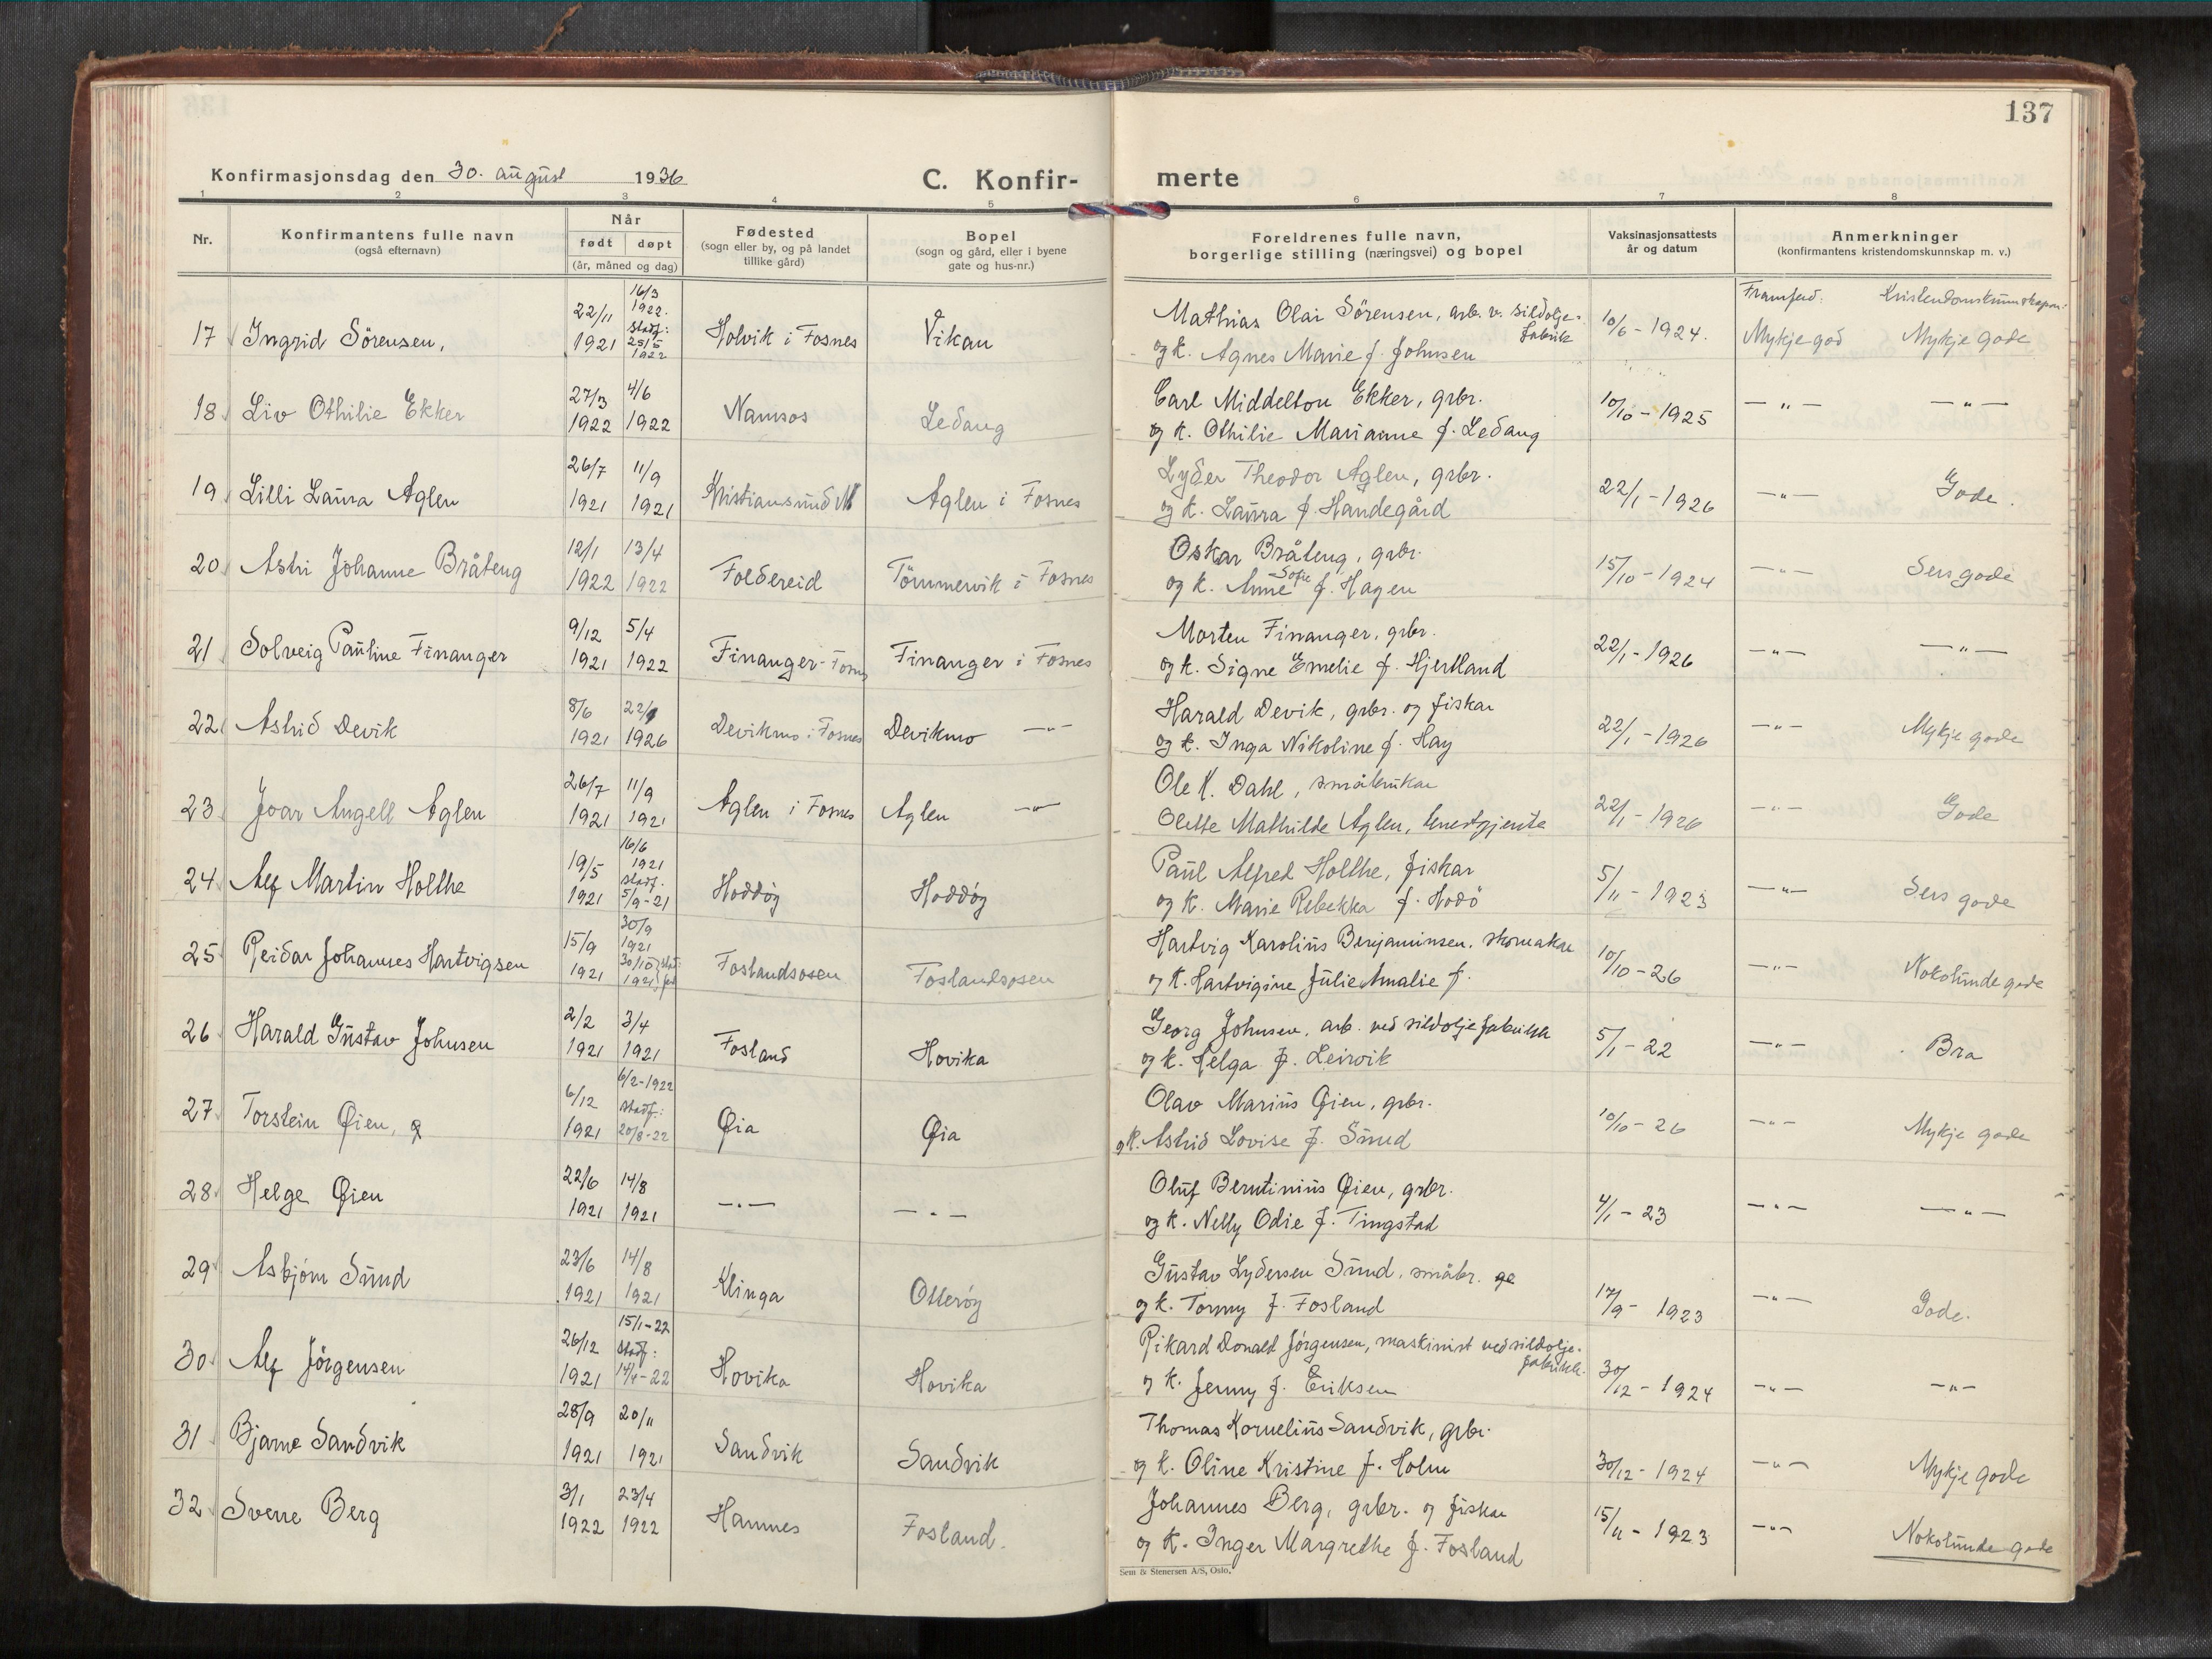 137
Konfirmasjonsdag den 30. august 1936
C. Konfir- merte
1 2 3 4 5 6 7 8
Nr.
Konfirmantens fulle navn
(også efternavn)
Når
født døpt
(år, måned og dag)
Fødested
(sogn eller by, og på landet
tillike gård)
Bopel
(sogn og gård, eller i byene
gate og hus-nr.)
Foreldrenes fulle navn,
borgerlige stilling (næringsvei) og bopel
Vaksinasjonsattests
år og datum
Anmerkninger
(konfirmantens kristendomskunnskap m. v.)
Framferd: Kristendomskunnskapen:
16/3
22/11 1922. Mathias Olai Sörensen, arb. v. sildolje-
stadf: fabrik
17 Ingrid Sörensen, 1921 25/5 1922 Holvik i Fosnes Vikan og k. Agnes Marie f. Johnsen 10/6 - 1924. Mykje god Mykje gode
27/3 4/6 Carl Middelton Ekker, grbr.
18 Liv Othilie Ekker 1922 1922 Namsos Ledang og k. Othilie Marianne f. Ledang 10/10 - 1925 — " — — " —
26/7 11/9 Lyder Theodor Aglen, grbr.
19 Lilli Laura Aglen 1921 1921 Kristiansund N Aglen i Fosnes og k. Laura f. Handegård 22/1 - 1926 — " — Gode.
12/1 13/4 Oskar Bråteng, grbr.
20 Astri Johanne Bråteng 1922 1922 Foldereid Tömmervik i Fosnes og k. Anne Sofie f. Hagen 15/10 - 1924 — " — Sers gode
9/12 5/4 Morten Finanger, grbr.
21 Solveig Pauline Finanger 1921 1922 Finanger-Fosnes Finanger i Fosnes og k. Signe Emelie f. Hjertland 22/1 - 1926 — " — — " —
8/6 22/1 Harald Devik, grbr. og fiskar
22 Astrid Devik 1921 1926 Devikmo i Fosnes Devikmo — " — og k. Inga Nikoline f. Hay 22/1 - 1926 — " — Mykje gode
26/7 11/9 Ole K. Dahl, småbrukar
23 Joar Angell Aglen 1921 1921 Aglen i Fosnes Aglen — " — Olette Mathilde Aglen, tenestgjente 22/1 - 1926 — " — Gode
16/6
19/5 1921 Paul Alfred Holthe, fiskar
stadf.
24 Alf Martin Holthe 1921 5/9-21 Hoddöy Hoddöy og k. Marie Rebekka f. Hodö 5/11 - 1923 — " — Sers gode
30/9
15/9 1921 Hartvig Karolius Benjaminsen, skomakar
25 Reidar Johannes Hartvigsen 1921 30/10 1921 stadfest Foslandsosen Foslandsosen og k. Hartvigine Julie Amalie f. 10/10 - 26 — " — Nokolunde gode
2/2 3/4 Georg Johnsen, arb. ved sildoljefabrikk
26 Harald Gustav Johnsen 1921 1921 Fosland Hovika og k. Helga f. Leirvik 5/1 - 22 — " — Bra
6/12 6/2-1922 Olav Marius Øien, grbr.
stadf:
27 Torstein Øien, 1921 20/8-22 Øia Øia og k. Astrid Lovise f. Sund 10/10 - 26 — " — Mykje gode
22/6 14/8 Oluf Berntinius Øien, grbr.
28 Helge Øien 1921 1921 — " — — " — og k. Nelly Odie f. Tingstad 4/1 - 23 — " — — " —
23/6 14/8 Gustav Lydersen Sund, småbr.
29 Asbjörn Sund 1921 1921 Klinga Otteröy og k. Tommy f. Fosland 17/9 - 1923 — " — Gode.
15/1-22
26/12 stadf: Rikard Donald Jörgensen, maskinist ved sildolje-
fabrikk.
30 Alf Jörgensen 1921 14/4-22 Hovika Hovika og k. Jenny f. Eriksen 30/12 - 1924 — " — — " —
28/9 20/11 Thomas Kornelius Sandvik, grbr.
31 Bjarne Sandvik 1921 1921 Sandvik Sandvik og k. Oline Kristine f. Holm 30/12 - 1924 — " — Mykje gode
3/1 23/4 Johannes Berg, grbr. og fiskar
32 Sverre Berg 1922 1922 Hamnes Fosland. og k. Inger Margrethe f. Fosland 15/11 - 1923 — " — Nokolunde gode
Sem & Stenersen A/S, Oslo.